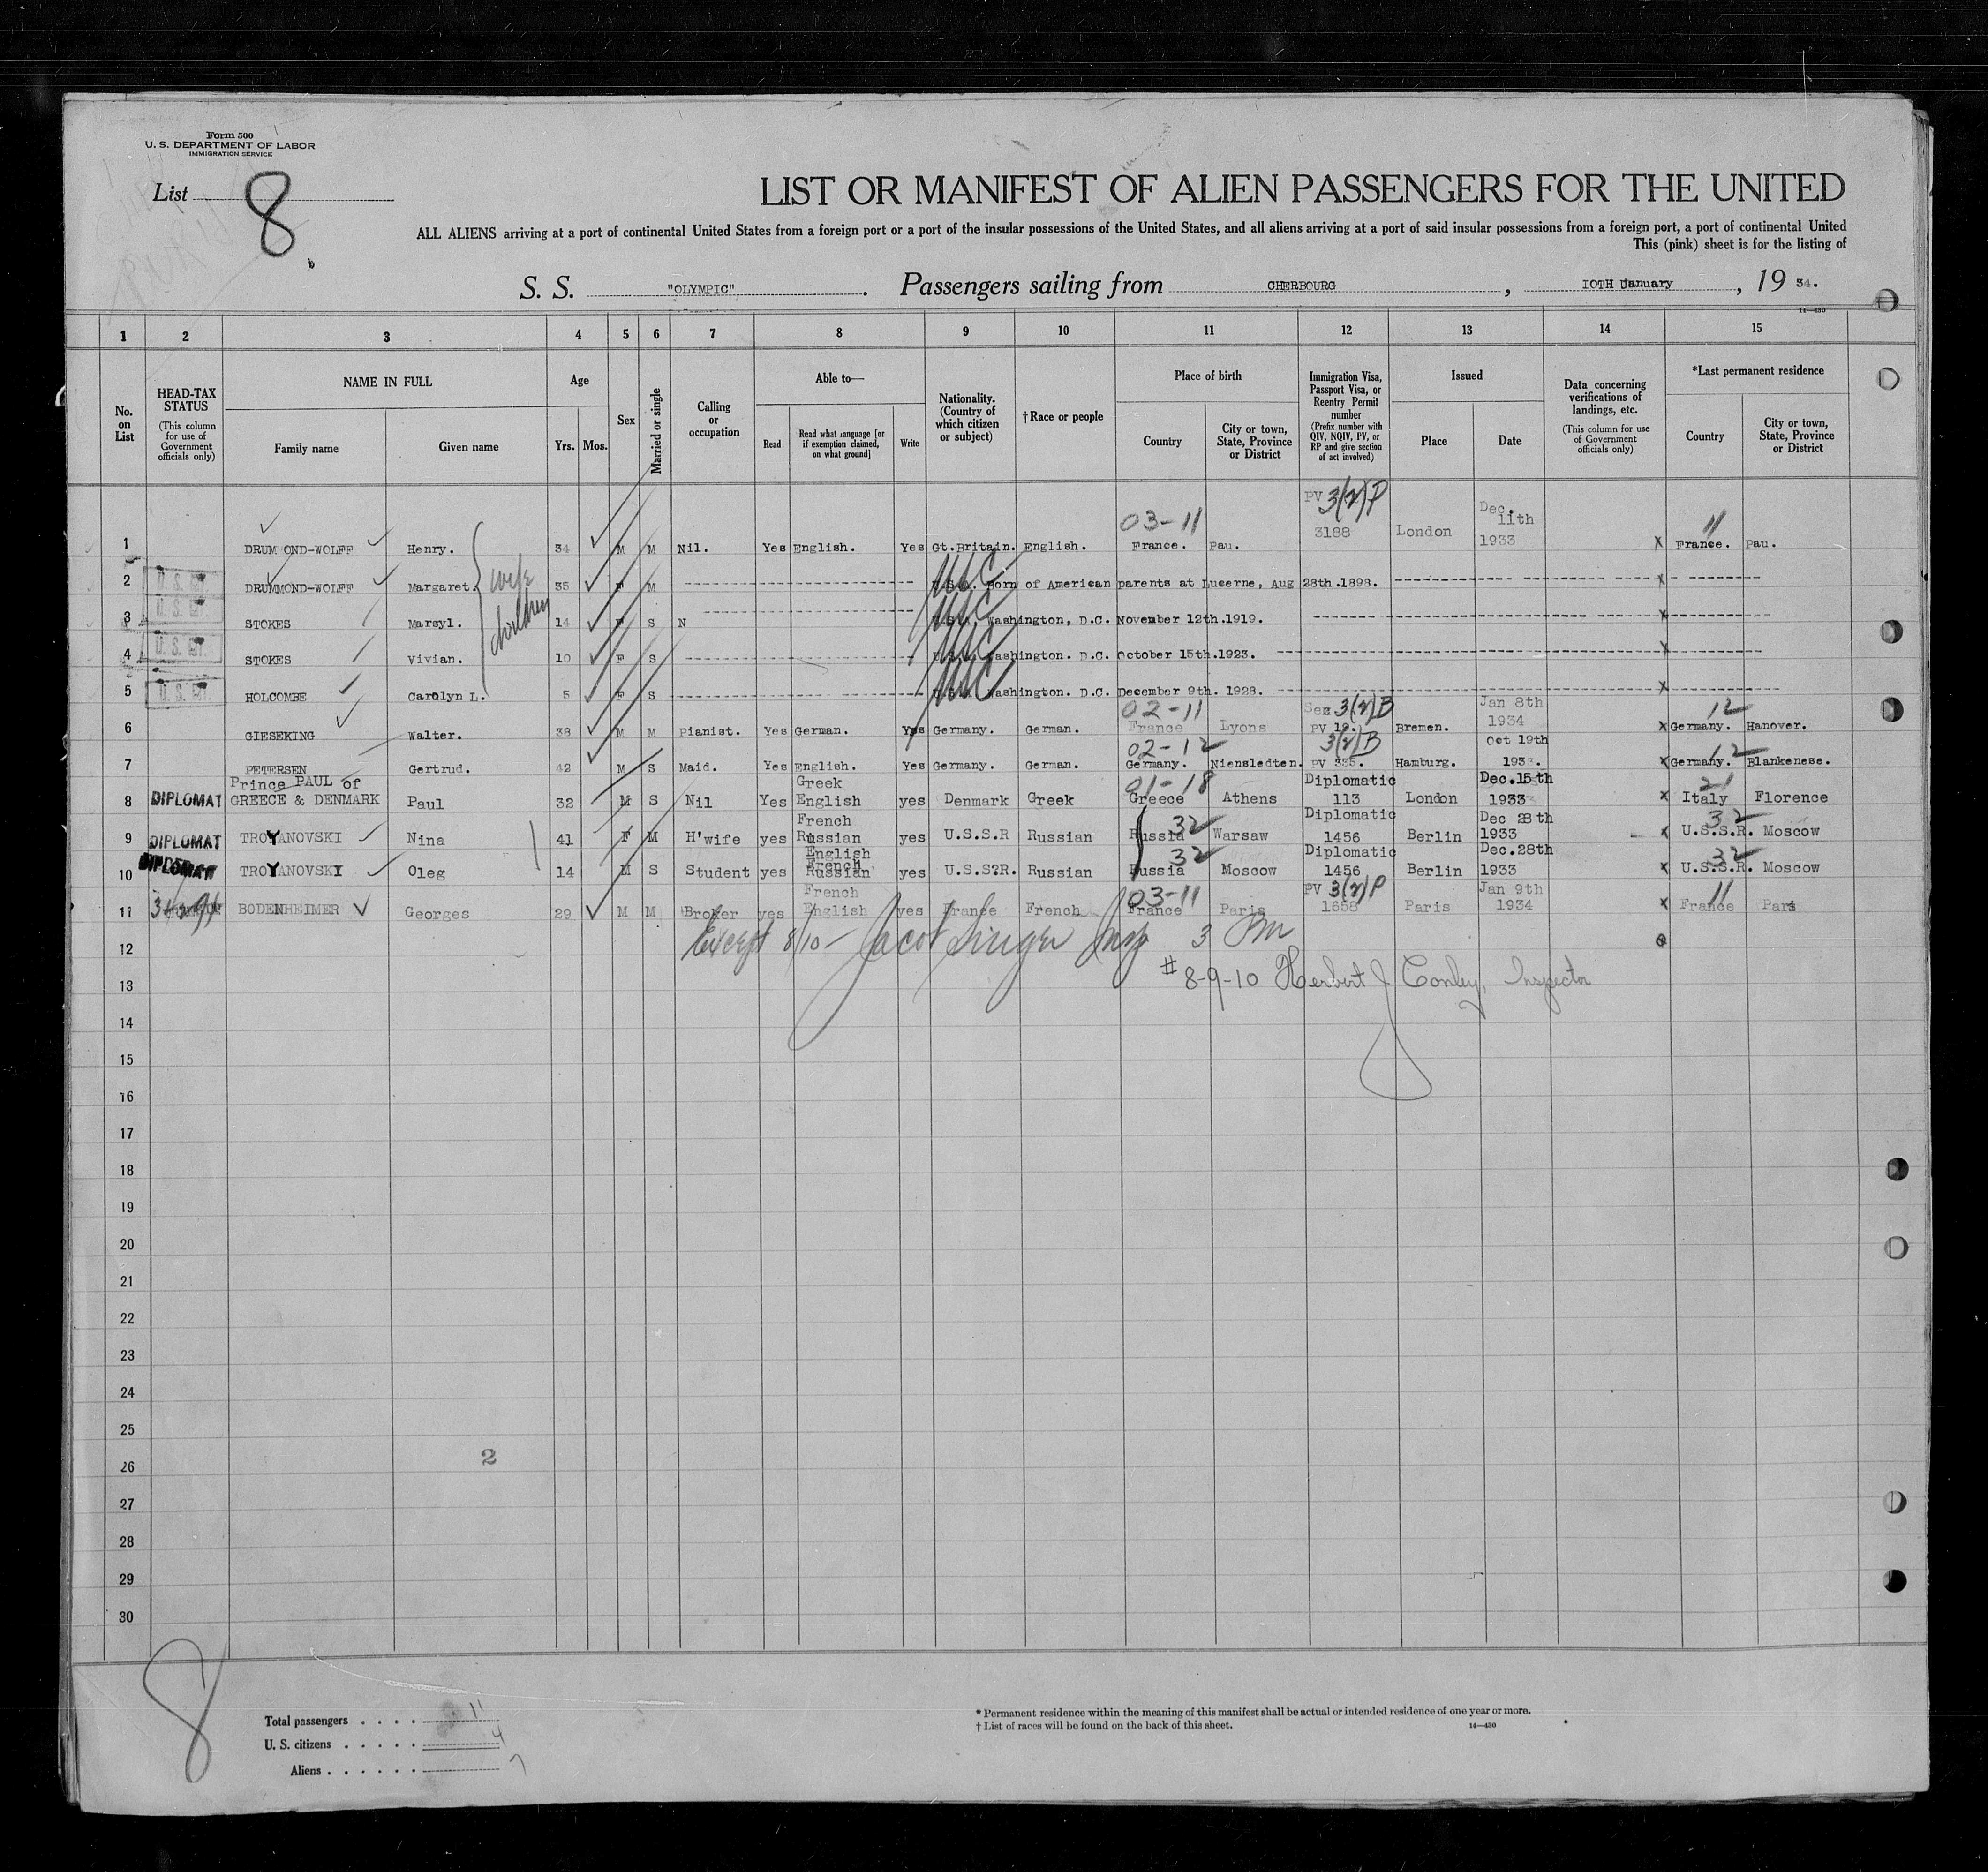 Form 500
U. S. DEPARTMENT OF LABOR
IMMIGRATION SERVICE
List 8
LIST OR MANIFEST OF ALIEN PASSENGERS FOR THE UNITED
ALL ALIENS arriving at a port of continental United States from a foreign port or a port of the insular possessions of the United States, and all aliens arriving at a port of said insular possessions from a foreign port, a port of continental United
This (pink) sheet is for the listing of
S. S. "OLYMPIC". Passengers sailing from CHERBOURG, 10TH January, 19 34.
14—430
1 2 3 4 5 6 7 8 9 10 11 12 13 14 15
No. on List
HEAD-TAX STATUS
(This column for use of Government officials only)
NAME IN FULL
Family name
Given name
Age
Yrs. Mos.
Sex
Married or single
Calling or occupation
Able to—
Read
Read what language [or if exemption claimed, on what ground]
Write
Nationality. (Country of which citizen or subject)
†Race or people
Place of birth
Country
City or town, State, Province or District
Immigration Visa, Passport Visa, or Reentry Permit number
(Prefix number with QIV, NQIV, PV, or RP and give section of act involved)
Issued
Place
Date
Data concerning verifications of landings, etc.
(This column for use of Government officials only)
*Last permanent residence
Country
City or town, State, Province or District
03-11 PV 3(2)P Dec. 11th 11
1 DRUMMOND-WOLFF Henry. 34 M M Nil. Yes English. Yes Gt.Britain. English. France. Pau. 3188 London 1933 x France. Pau.
2 U. S. DRUMMOND-WOLFF Margaret. wife 35 F M USC U.S.A. Born of American parents at Lucerne, Aug 28th.1898. x
3 U. S. STOKES Marsyl. children 14 F S N USC U.S.A. Washington, D.C. November 12th.1919. x
4 U. S. STOKES Vivian. 10 F S USC U.S.A. Washington. D.C. October 15th.1923. x
5 U. S. HOLCOMBE Carolyn L. 5 F S USC U.S.A. Washington. D.C. December 9th. 1928. x
02-11 Sez 3(2)B Jan 8th 12
6 GIESEKING Walter. 38 M M Pianist. Yes German. Yes Germany. German. France Lyons PV 19. Bremen. 1934 x Germany. Hanover.
02-12 3(2)B Oct 19th 12
7 PETERSEN Gertrud. 42 M S Maid. Yes English. Yes Germany. German. Germany. Nienstedten. PV 335. Hamburg. 1933. x Germany. Blankenese.
Prince PAUL of Greek 01-18 Diplomatic Dec.15th 21
8 DIPLOMAT GREECE & DENMARK Paul 32 M S Nil Yes English yes Denmark Greek Greece Athens 113 London 1933 x Italy Florence
French 32 Diplomatic Dec 28th 32
9 DIPLOMAT TROYANOVSKI Nina 41 F M H'wife yes Russian yes U.S.S.R Russian Russia Warsaw 1456 Berlin 1933 x U.S.S.R. Moscow
English French 32 Diplomatic Dec.28th 32
10 DIPLOMAT TROYANOVSKI Oleg 14 M S Student yes Russian yes U.S.S?R. Russian Russia Moscow 1456 Berlin 1933 x U.S.S.R. Moscow
French 03-11 PV 3(2)P Jan 9th 11
11 BODENHEIMER Georges 29 M M Broker yes English yes France French France Paris 1658 Paris 1934 x France Paris
12 Except 8/10 - Jacob Singer Insp 3
13 # 8-9-10 Herbert J Conley, Inspector
14
15
16
17
18
19
20
21
22
23
24
25
2
26
27
28
29
30
8
Total passengers . . . . 11
U. S. citizens . . . . . 4
Aliens . . . . . . 7
* Permanent residence within the meaning of this manifest shall be actual or intended residence of one year or more.
† List of races will be found on the back of this sheet.
14—430